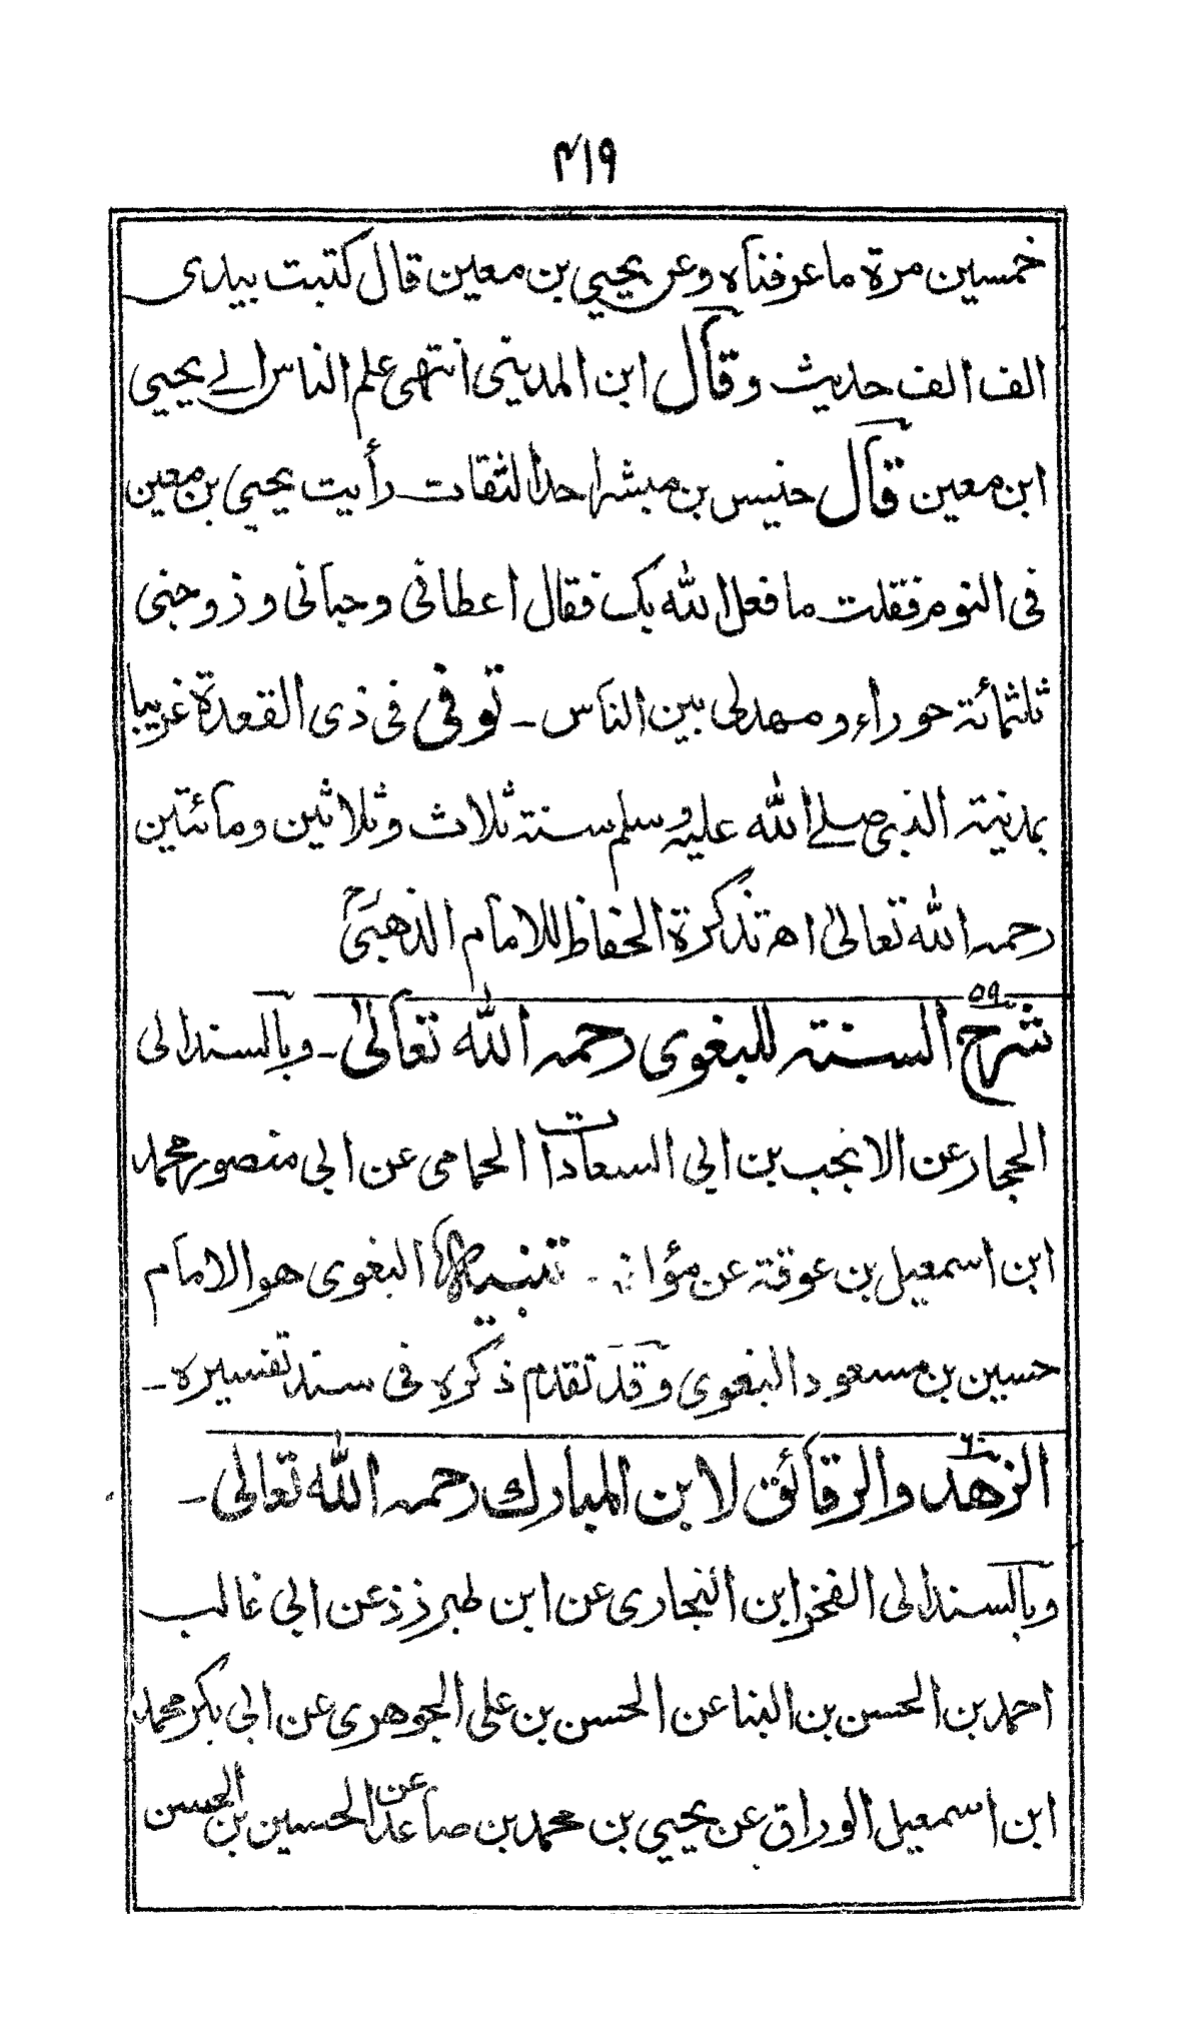 ۴۱۹
خمسين مرة ما عرفناه وعن يحيي بن معين قال كتبت بيدى
الف الف حديث وقال ابن المديني انتهى علم الناس الے يحيي
ابن معين قال حنيس بن مبشر احد الثقات رأيت يحيي بن معين
فى النوم فقلت ما فعل الله بك فقال اعطانى وحبانى وزوجنى
ثلثمائة حوراء ومهد لى بين الناس ـ توفى فى ذى القعدة غريبا
بمدينة النبى صلے الله عليه وسلم سنة ثلاث وثلاثين ومائتين
رحمه الله تعالىٰ اھ تذكرة الحفاظ للامام الذهبىؒ
۵۹
شرح السنة للبغوى رحمه الله تعالىٰ ـ وبالسند الى
الحجار عن الانجب بن ابى السعادات الحمامى عن ابى منصور محمد
ابن اسمعيل بن عوقة عن مؤ ـ تنبيه البغوى هو الامام
حسين بن مسعود البغوى وقد تقدم ذكره فى سند تفسيره ـ
۶۰
الزهد والرقائق لابن المبارك رحمه الله تعالى ـ
وبالسند الى الفخر ابن النجارى عن ابن طبرزذ عن ابى غالب
احمد بن الحسن بن البنا عن الحسن بن على الجوهرى عن ابى بكر محمد
ابن اسمعيل الوراق عن يحيي بن محمد بن صاعد عن الحسين بن الحسن